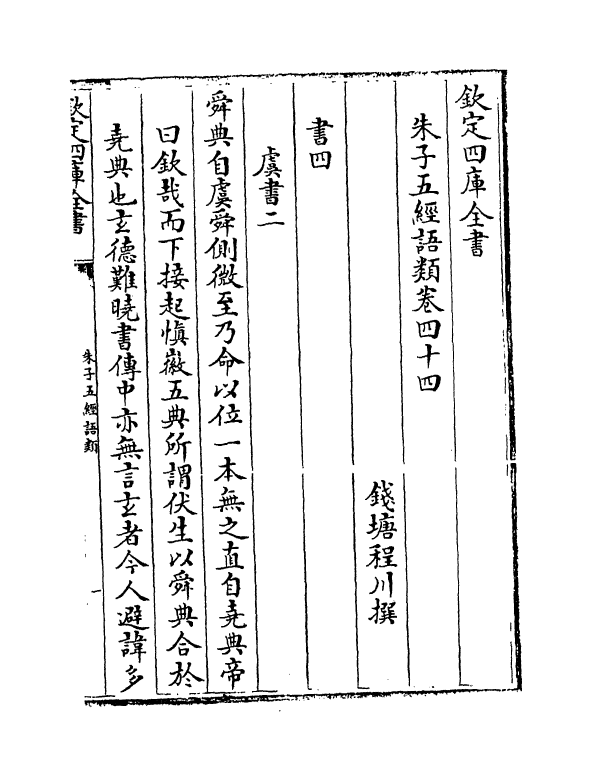 欽定四庫全書
朱子五經語類卷四十四
錢塘程川撰
書四
虞書二
舜典自虞舜側微至乃命以位一本無之直自堯典帝
曰欽哉而下接起慎徽五典所謂伏生以舜典合於
堯典也玄德難曉書傳中亦無言玄者今人避諱多
欽定四庫全書
朱子五經語類
一